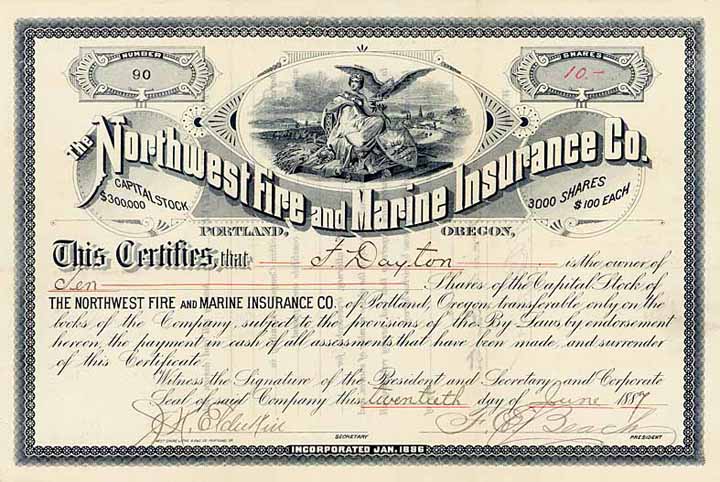 NUMBER
90
SHARES
10.-
The Northwest Fire and Marine Insurance Co.
CAPITAL STOCK
$300,000
3000 SHARES
$100 EACH
PORTLAND, OREGON,
This Certifies, that F. Dayton is the owner of
Ten Shares of the Capital Stock of
THE NORTHWEST FIRE AND MARINE INSURANCE CO. of Portland, Oregon, transferable only on the
books of the Company, subject to the provisions of the By Laws by endorsement
hereon, the payment in cash of all assessments that have been made, and surrender
of this Certificate
Witness the Signature of the President and Secretary and Corporate
Seal of said Company this twentieth day of June 1887
F. E. Beach
SECRETARY
PRESIDENT
INCORPORATED JAN. 1886